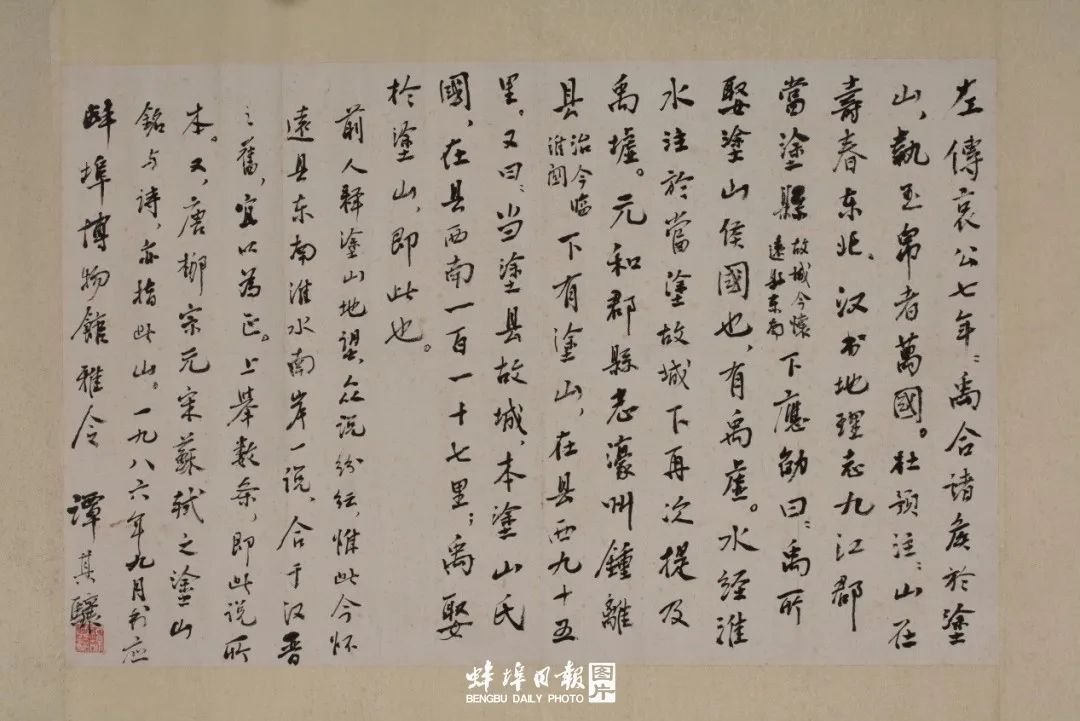 左傳哀公七年：禹合諸侯於塗
山，執玉帛者萬國。杜预注：山在
壽春东北。汉书地理志九江郡
當塗縣故城今懷遠县东南下應劭曰：禹所
娶塗山侯國也，有禹虚。水經淮
水注於當塗故城下再次提及
禹墟。元和郡縣志濠州鍾離
县治今临淮関下有塗山，在县西九十五
里。又曰：当塗县故城，本塗山氏
國，在县西南一百一十七里；禹娶
於塗山，即此也。
前人释塗山地望，众说纷纭，惟此今怀
遠县东南淮水南岸一说，合于汉晋
之舊，宜以為正。上举数条，即此说所
本。又，唐柳宗元宋蘇轼之塗山
銘与诗，亦指此山。一九八六年九月应
蚌埠博物館雅令 譚其驤
蚌埠日报 图片
BENGBU DAILY PHOTO